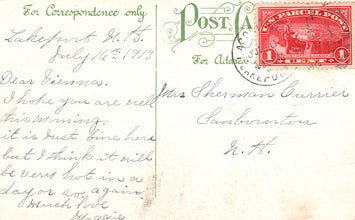 For Correspondence only
Lakeport N.H.
July 16th 1913
Dear Vienna.
I hope you are well
this morning.
it is just fine here
but I think it will
be very hot in a
day or so, again
Much love
Maggie
POST CARD
For Address
U.S. PARCEL POST
1 CENT 1
LAKEPORT
Mrs Sherman Currier
Sanbornton
N.H.